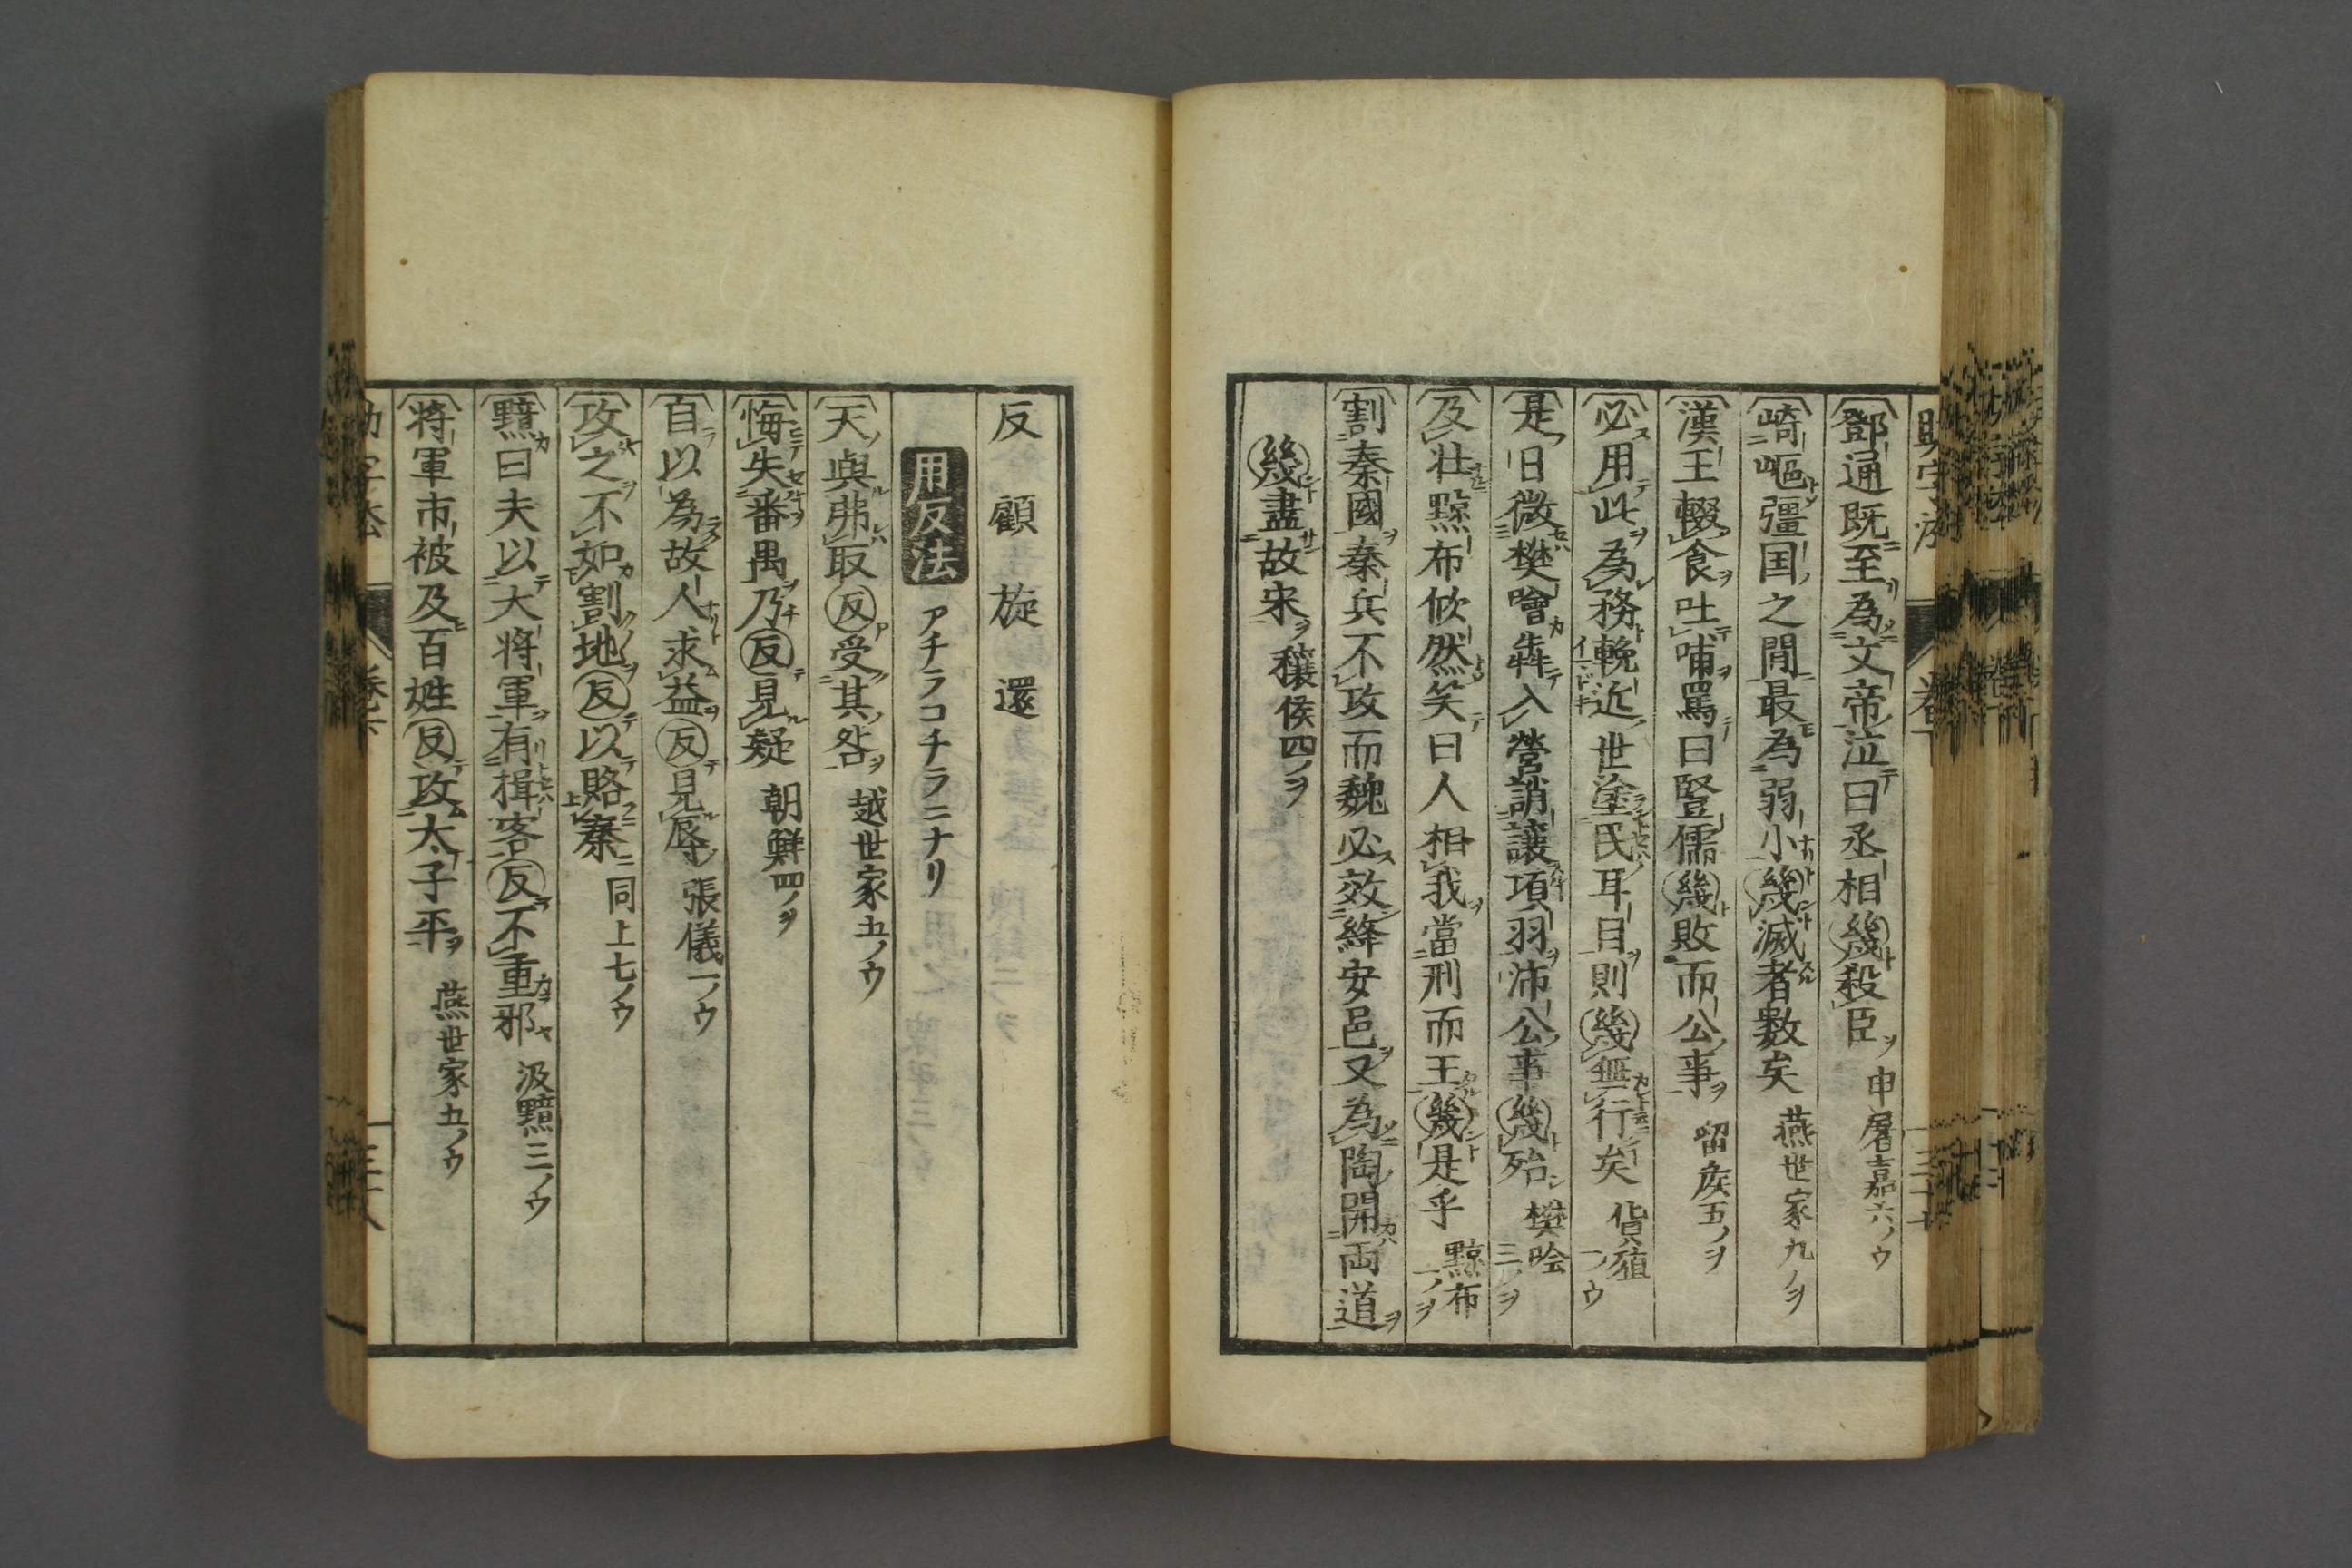 鄧通既至為文帝泣曰丞相幾殺臣 申屠嘉六ノウ
崎嶇彊国之間最為弱小幾滅者數矣 燕世家九ノヲ
漢王輟食吐哺罵曰豎儒幾敗而公事 留侯五ノヲ
必用此為務輓近世塗民耳目則幾無行矣 貨殖一ノウ
是日微樊噲犇入營誚讓項羽沛公事幾殆 樊噲三ノヲ
及壯黥布欣然笑曰人相我當刑而王幾是乎 黥布一ノヲ
割秦國秦兵不攻而魏必效絳安邑又為陶開両道
幾盡故宋 穰侯四ノヲ
反 顧 旋 還
用反法 アチラコチラニナリ
天與弗取反受其咎 越世家五ノウ
悔失番禺乃反見疑 朝鮮四ノヲ
自以為故人求益反見辱 張儀一ノウ
攻之不如割地反以賂秦 同上七ノウ
黯曰夫以大將軍有揖客反不重邪 汲黯三ノウ
将軍市被及百姓反攻太子平 燕世家五ノウ